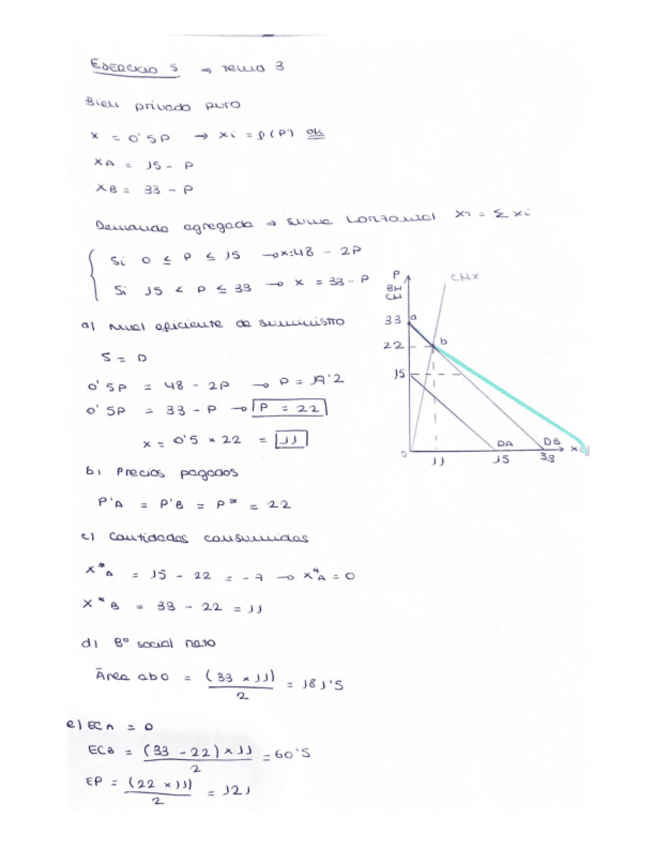 Ejercicio 5 → Tema 3
Bien privado puro
x = 0'5P → xi = f(P) ok
xA = 15 - P
xB = 33 - P
Demanda agregada → suma horizontal xT = Σ xi
Si 0 ≤ P ≤ 15 → x=48 - 2P
Si 15 < P ≤ 33 → x = 33 - P
a) Nivel eficiente de suministro
S = D
0'5P = 48 - 2P → P = 19'2
0'5P = 33 - P → P = 22
x = 0'5 * 22 = 11
b) Precios pagados
P*A = P*B = P* = 22
c) Cantidades consumidas
x*A = 15 - 22 = -7 → x*A = 0
x*B = 33 - 22 = 11
d) Bº social neto
Área abo = (33 x 11) / 2 = 181'5
e) ECA = 0
ECB = (33 - 22) x 11 / 2 = 60'5
EP = (22 x 11) / 2 = 121
P
BM
CM
CMx
33 a
22 b
15
0 11 DA 15 DB 33 x